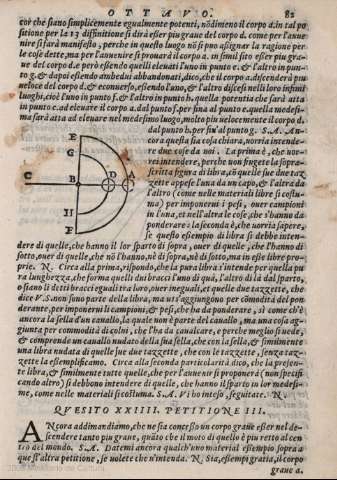 OTTAVO. 82
cor che siano simplicemente egualmente potenti, nõdimeno il corpo a. in tal po
sitione per la 13 diffinitione si dirà esser piu graue del corpo d. come per l'auue
nire si farà manifesto, perche in questo luogo nõ si può assignar la ragione per
de cose dette, ma per l'auuenire si prouarà il corpo a. in simil sito esser piu gra-
ue del corpo d. e però essendo quelli eleuati l'uno in ponto e. & l'altro in pun-
to g. & dapoi essendo ambedui abbandonati, dico, che il corpo a. discenderà piu
ueloce del corpo d. & econuerso, essendo l'uno, & l'altro discesi nelli loro infimi
luoghi, cioè l'uno in ponto f. & l'altro in ponto h. quella potentia che sarà atta
in punto e. ad eleuare il corpo a. dal punto f. per fina al punto e. quella medesi-
ma sarà atta ad eleuare nel medesimo luogo, molto piu uelocemente il corpo d.
dal punto h. per fin'al punto g. S. A. An-
cora questa sia cosa chiara, uorria intende-
re due cose da uoi. La prima è, che uor-
rei intendere, perche uon fingete la sopra-
scritta figura di libra, cõ quelle sue due taz-
zette appese l'una da un capo, & l'altra da
l'altro (come nelle materiali libre si costu-
ma) per imponerui i pesi, ouer campioni
in l'una, et nell'altra le cose, che s'hanno da
ponderare: la seconda è, che uorria sapere,
se questo essempio di libra si debbe inten-
dere di quelle, che hanno il lor sparto di sopra, ouer di quelle, che l'hanno di
sotto, ouer di quelle, che nõ l'hanno, nè di sopra, nè di sotto, ma in esse libre pro-
prie. N. Circa alla prima, rispondo, che la pura libra s'intende per quella pu
ra lunghezza, che forma quelli dui bracci l'uno di quà, l'altro di là dal sparto,
o siano li detti bracci eguali tra loro, ouer ineguali, et quelle due tazzette, che
dice V. S. non sono parte della libra, ma ui s'aggiungono per cõmodità del pon
derante, per imponerui li campioni, & pesi, che ha da ponderare, si come ch'è
ancora la sella d'un cauallo, la quale non è parte del cauallo, ma una cosa ag-
giunta per commodità di colui, che l'ha da caualcare, e perche meglio si uede,
& comprende un cauallo nudato della sua sella, che con la sella, & similmente
una libra nudata di quelle sue due tazzette, che con le tazzette, senza taz-
zette la essemplificamo. Circa alla seconda particolarità dico, che la presen-
te libra, & similmente tutte quelle, che per l'auuenir si proponerà (non specifi-
cando altro) si debbono intendere di quelle, che hanno il sparto in lor medesi-
me, come nelle materiali si costuma. S. A. Vi ho inteso, seguitate. N.
QVESITO XXIIII. PETITIONE III.
ANcora addimandiamo, che ne sia concesso un corpo graue esser nel de-
scendere tanto piu graue, quãto che il moto di quello è piu retto al cen-
tro del mondo. S. A. Datemi ancora qualch'uno material essempio sopra a
que st'altra petitione, se uolete che n'intenda. N. Sia, essempi gratia, il corpo
graue a.
E
G
C B D A
H
F